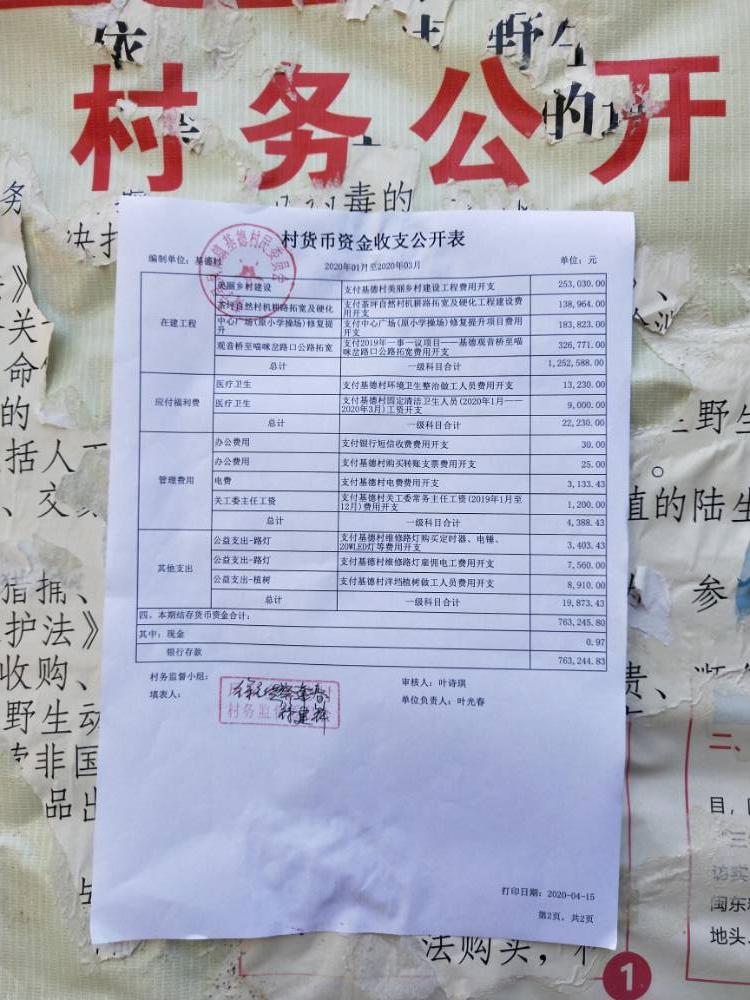 依
野生
村务公开
的
务
毒的
村货币资金收支公开表
编制单位：基德村
2020年01月至2020年03月
单位：元
基德村民委员会
在建工程
美丽乡村建设 支付基德村美丽乡村建设工程费用开支 253,030.00
茶坪自然村机耕路拓宽及硬化 支付茶坪自然村机耕路拓宽及硬化工程建设费用开支 138,964.00
中心广场(原小学操场)修复提升 支付中心广场(原小学操场)修复提升项目费用开支 183,823.00
观音桥至喵咪岔路口公路拓宽 支付2019年一事一议项目——基德观音桥至喵咪岔路口公路拓宽费用开支 326,771.00
总计 一级科目合计 1,252,588.00
应付福利费
医疗卫生 支付基德村环境卫生整治做工人员费用开支 13,230.00
医疗卫生 支付基德村固定清洁卫生人员(2020年1月——2020年3月)工资开支 9,000.00
总计 一级科目合计 22,230.00
管理费用
办公费用 支付银行短信收费费用开支 30.00
办公费用 支付基德村购买转账支票费用开支 25.00
电费 支付基德村电费费用开支 3,133.43
关工委主任工资 支付基德村关工委常务主任工资(2019年1月至12月)费用开支 1,200.00
总计 一级科目合计 4,388.43
其他支出
公益支出-路灯 支付基德村维修路灯购买定时器、电锤、20WLED灯等费用开支 3,403.43
公益支出-路灯 支付基德村维修路灯雇佣电工费用开支 7,560.00
公益支出-植树 支付基德村洋垱植树做工人员费用开支 8,910.00
总计 一级科目合计 19,873.43
四、本期结存货币资金合计： 763,245.80
其中：现金 0.97
银行存款 763,244.83
村务监督小组：
审核人：叶诗琪
填表人：
单位负责人：叶光春
村务监
打印日期：2020-04-15
第2页，共2页
法购买，
野生
。
植的陆生
参
二、
目，
三
访实
闽东
地头、
1
决
》
关
命
的
括人
、交
猎捕、
护法》
收购、
野生动
非国
品出